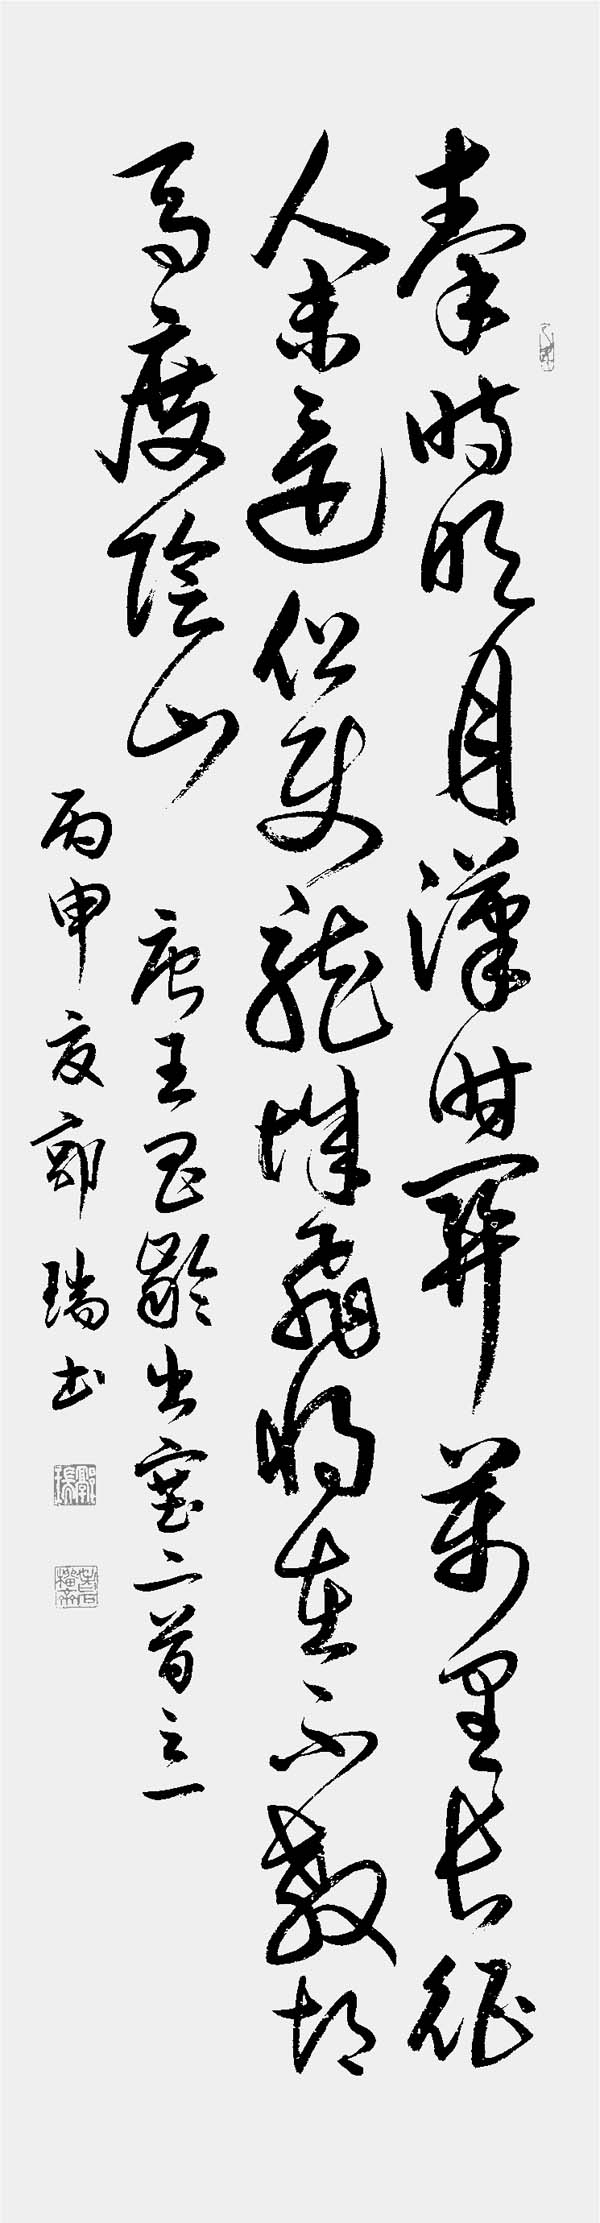 秦時明月漢時關萬里長征
人未還但使龍城飛將在不教胡
馬度陰山
唐王昌齡出塞二首之一
丙申夏郭瑞书